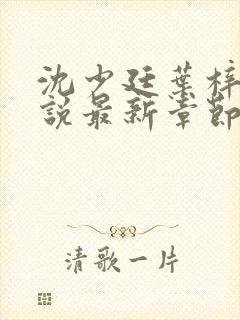 沈少廷葉梓
說最新章節
清歌一片